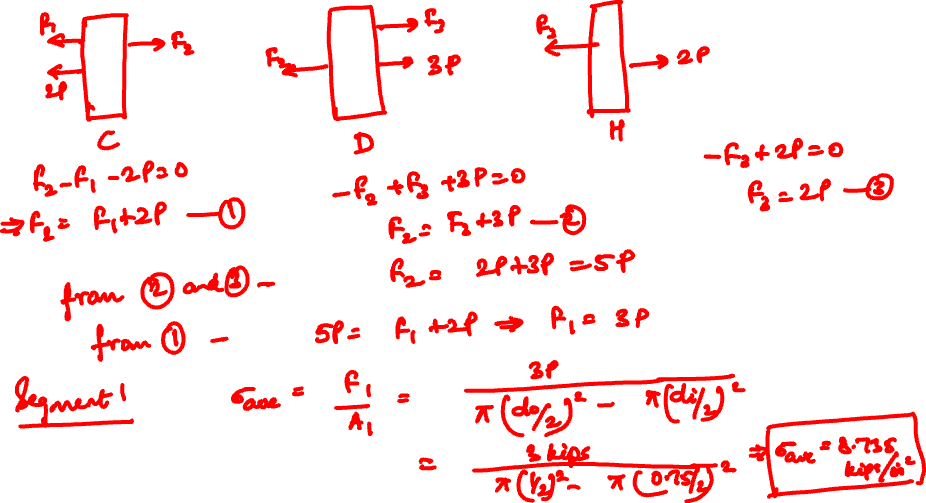 F₁ F₂ 2P
C
F₂ F₃ 3P
D
F₃ 2P
H
F₂ - F₁ - 2P = 0
⇒ F₂ = F₁ + 2P — ①
-F₂ + F₃ + 3P = 0
F₂ = F₃ + 3P — ②
F₂ = 2P + 3P = 5P
-F₃ + 2P = 0
F₃ = 2P — ③
from ② and ③ -
from ① - 5P = F₁ + 2P ⇒ F₁ = 3P
Segment 1 σave = F₁/A₁ = 3P / (π(do/2)² - π(di/2)²)
= 3 kips / (π(1/2)² - π(0.75/2)²) ⇒ σave = 8.735 kips/in²